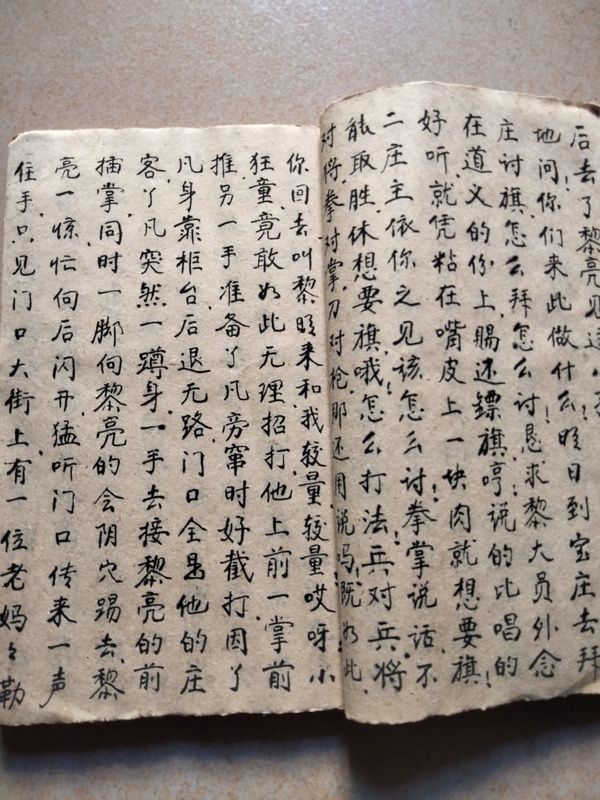 后去了黎亮见这
地问你们来此做什么明日到宝庄去拜
庄讨旗怎么拜怎么讨恳求黎大员外念
在道义的份上赐还镖旗哼说的比唱的
好听就凭粘在嘴皮上一块肉就想要旗
二庄主依你之见该怎么讨拳掌说话不
能取胜休想要旗哦怎么打法兵对兵将
对将拳对掌刀对枪那还用说吗既如此
你回去叫黎明来和我较量较量哎呀小
狂童竟敢如此无理招打他上前一掌前
推另一手准备了凡旁窜时好截打因了
凡身靠柜台后退无路门口全是他的庄
客了凡突然一蹲身一手去接黎亮的前
插掌同时一脚向黎亮的会阴穴踢去黎
亮一惊忙向后闪开猛听门口传来一声
住手只见门口大街上有一位老妈々勒